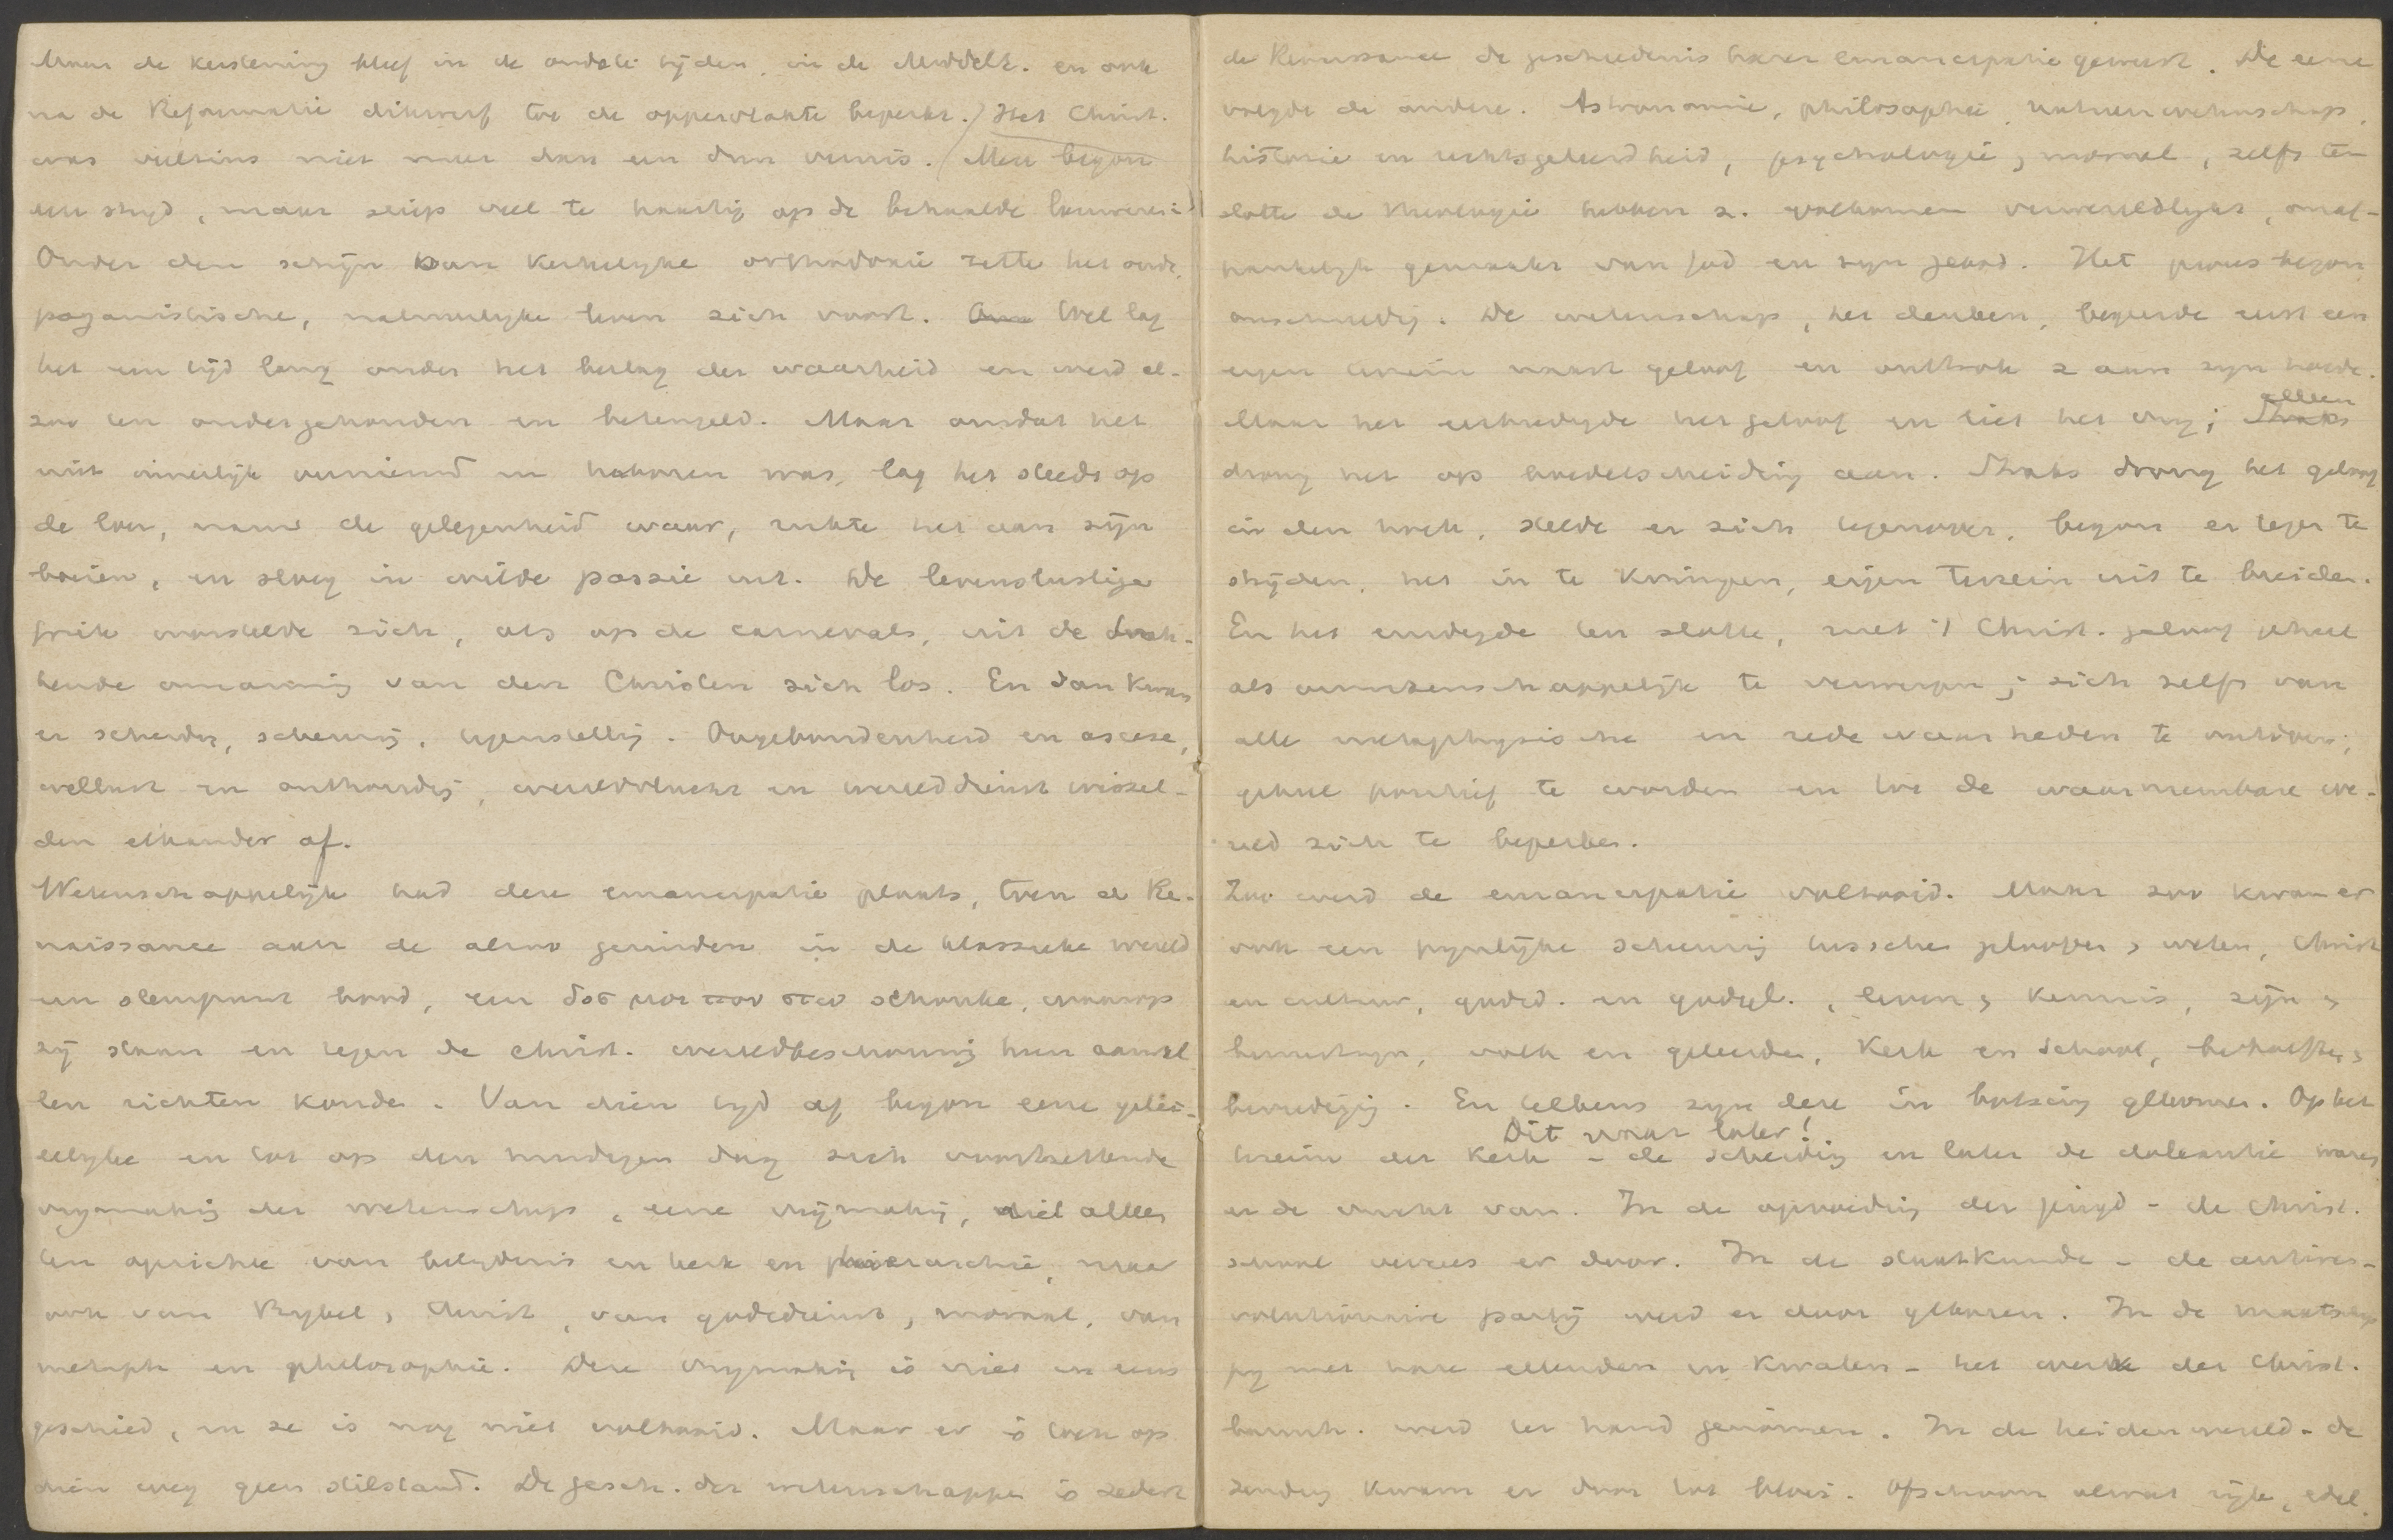 Maar de kerstening bleef in de oudste tijden, in de Middele. en ook
na de Reformatie dikwerf tot de oppervlakte beperkt. Het Christ.
was veelszins niet meer dan een dun vernis. Men begon
een strijd, maar sliep veel te haastig op de behaalde lauweren in
Onder den schijn van kerkelijke orthodoxie zette het oude,
paganistische, natuurlijke leven zich voort. Wel lag
het een tijd lang onder het beslag der waarheid en werd al-
zoo ten onder gehouden en beteugeld. Maar omdat het
niet innerlijk vernieuwd en herboren was, lag het steeds op
de loer, nam de gelegenheid waar, rukte het aan zijn
boeien, en sloeg in wilde passie uit. De levenslustige
worstelde zich, als op de carnevals, uit de druk-
kende omarming van den Christen zich los. En dan kwam
er scheiding, scheuring, tegenstelling. Ongebondenheid en ascese,
wellust en onthouding, wereldvlucht en werelddienst wissel-
den elkander af.
Wetenschappelijk had deze emancipatie plaats, toen de Re-
naissance aan de alzoo gezinden in de klassieke wereld
een steunpunt bood, een δος μοι που στω schonk, waarop
zij staan en tegen de christ. wereldbeschouwing hun aanval
len richten konden. Van dien tijd af begon eene gelei-
delijke en tot op den huidigen dag zich voortzettende
vrijmaking der wetenschap, eene vrijmaking, niet alleen
ten opzichte van belijdenis en kerk en hierarchie, maar
ook van Bijbel, Christ, van godsdienst, moraal, van
metaph en philosophie. Deze vrijmaking is niet in eens
geschied, en ze is nog niet voltooid. Maar er is toch op
dien weg geen stilstand. De gesch. der wetenschappen is sedert
de Renaissance de geschiedenis harer emancipatie geweest. De eene
volgde de andere. Astronomie, philosophie, natuurwetenschap,
historie en rechtsgeleerdheid, psychologie, moraal, zelfs ten
slotte de theologie hebben z. volkomen verwereldlijkt, onaf-
hankelijk gemaakt van God en zijn gebod. Het proces begon
onschuldig. De wetenschap, het denken, begeerde eerst een
eigen terrein naast geloof en onttrok z aan zijn hoede.
Maar het eerbiedigde het geloof en liet het vrij; Straks alleen
drong het op boedelscheiding aan. Straks drong het geloof
in den hoek, stelde er zich tegenover, begon er tegen te
strijden, het in te krimpen, eigen terrein uit te breiden.
En het eindigde ten slotte, met 't Christ. geloof geheel
als onwetenschappelijk te verwerpen; zich zelfs van
alle metaphysische en rede waarheden te ontdoen;
geheel positief te worden en tot de waarneembare we-
reld zich te beperken.
Zoo werd de emancipatie voltooid. Maar zoo kwam er
ook een pijnlijke scheuring tusschen gelooven, weten, Christ
en cultuur, godsd. en godgel., leven, kennis, zijn,
bewustzijn, volk en geleerden, Kerk en School, behoeften,
bevrediging. En telkens zijn deze in botsing gekomen. Op het
Dit voor later!
terrein der Kerk - de scheiding en later de doleantie waren
er de vrucht van. In de opvoeding der jeugd - de Christ.
school verrees er door. In de staatkunde - de antirev-
olutionaire partij werd er door geboren. In de maatschap
pij met hare ellenden en kwalen - het werk der Christ.
barmh. werd ter hand genomen. In de heidenwereld - de
zending kwam er door tot bloei. Ofschoon alwat rijk, edel,